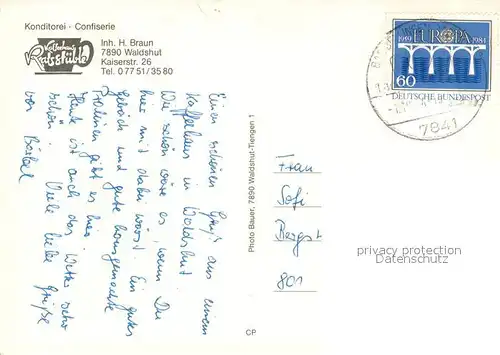 Konditorei - Confiserie
Kaffeehaus
Ratsstüble
Inh. H. Braun
7890 Waldshut
Kaiserstr. 26
Tel. 0 77 51 / 35 80
Einen schönen Gruß aus einem
Kaffeehaus in Waldshut
Wie schön wäre es, wenn Du
hier mit dabei wärst. Ein gutes
Gebäck und gute hausgemachte
Pralinen gibt es hier.
Heute ist auch das Wetter sehr
schön. Viele liebe Grüße
von Bärbel
Photo Bauer, 7890 Waldshut-Tiengen 1
CP
1959 EUROPA 1984
60
DEUTSCHE BUNDESPOST
7841
Frau
Sofi
Bergst
801
privacy protection
Datenschutz